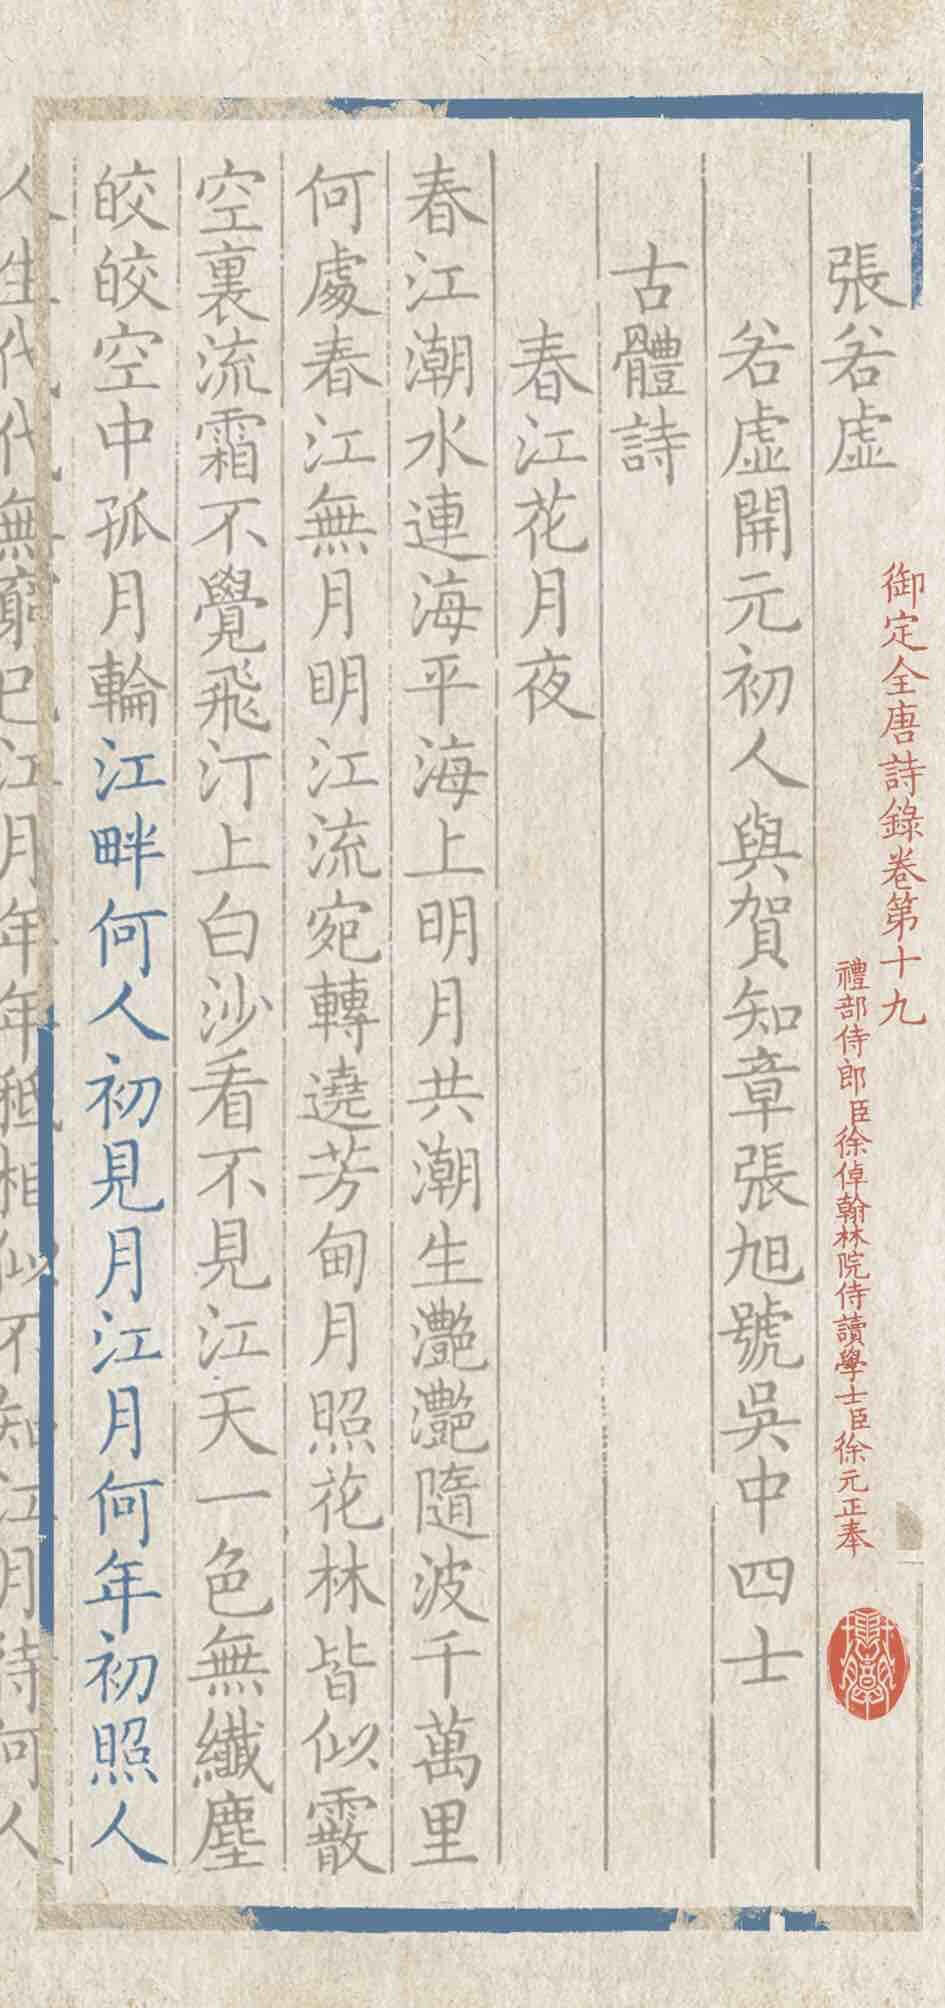 御定全唐詩錄卷第十九
禮部侍郎臣徐倬翰林院侍讀學士臣徐元正奉
張若虛
若虛開元初人與賀知章張旭號吳中四士
古體詩
春江花月夜
春江潮水連海平海上明月共潮生灧灧隨波千萬里
何處春江無月明江流宛轉遶芳甸月照花林皆似霰
空裏流霜不覺飛汀上白沙看不見江天一色無纖塵
皎皎空中孤月輪江畔何人初見月江月何年初照人
人生代代無窮已江月年年秪相似不知江月待何人